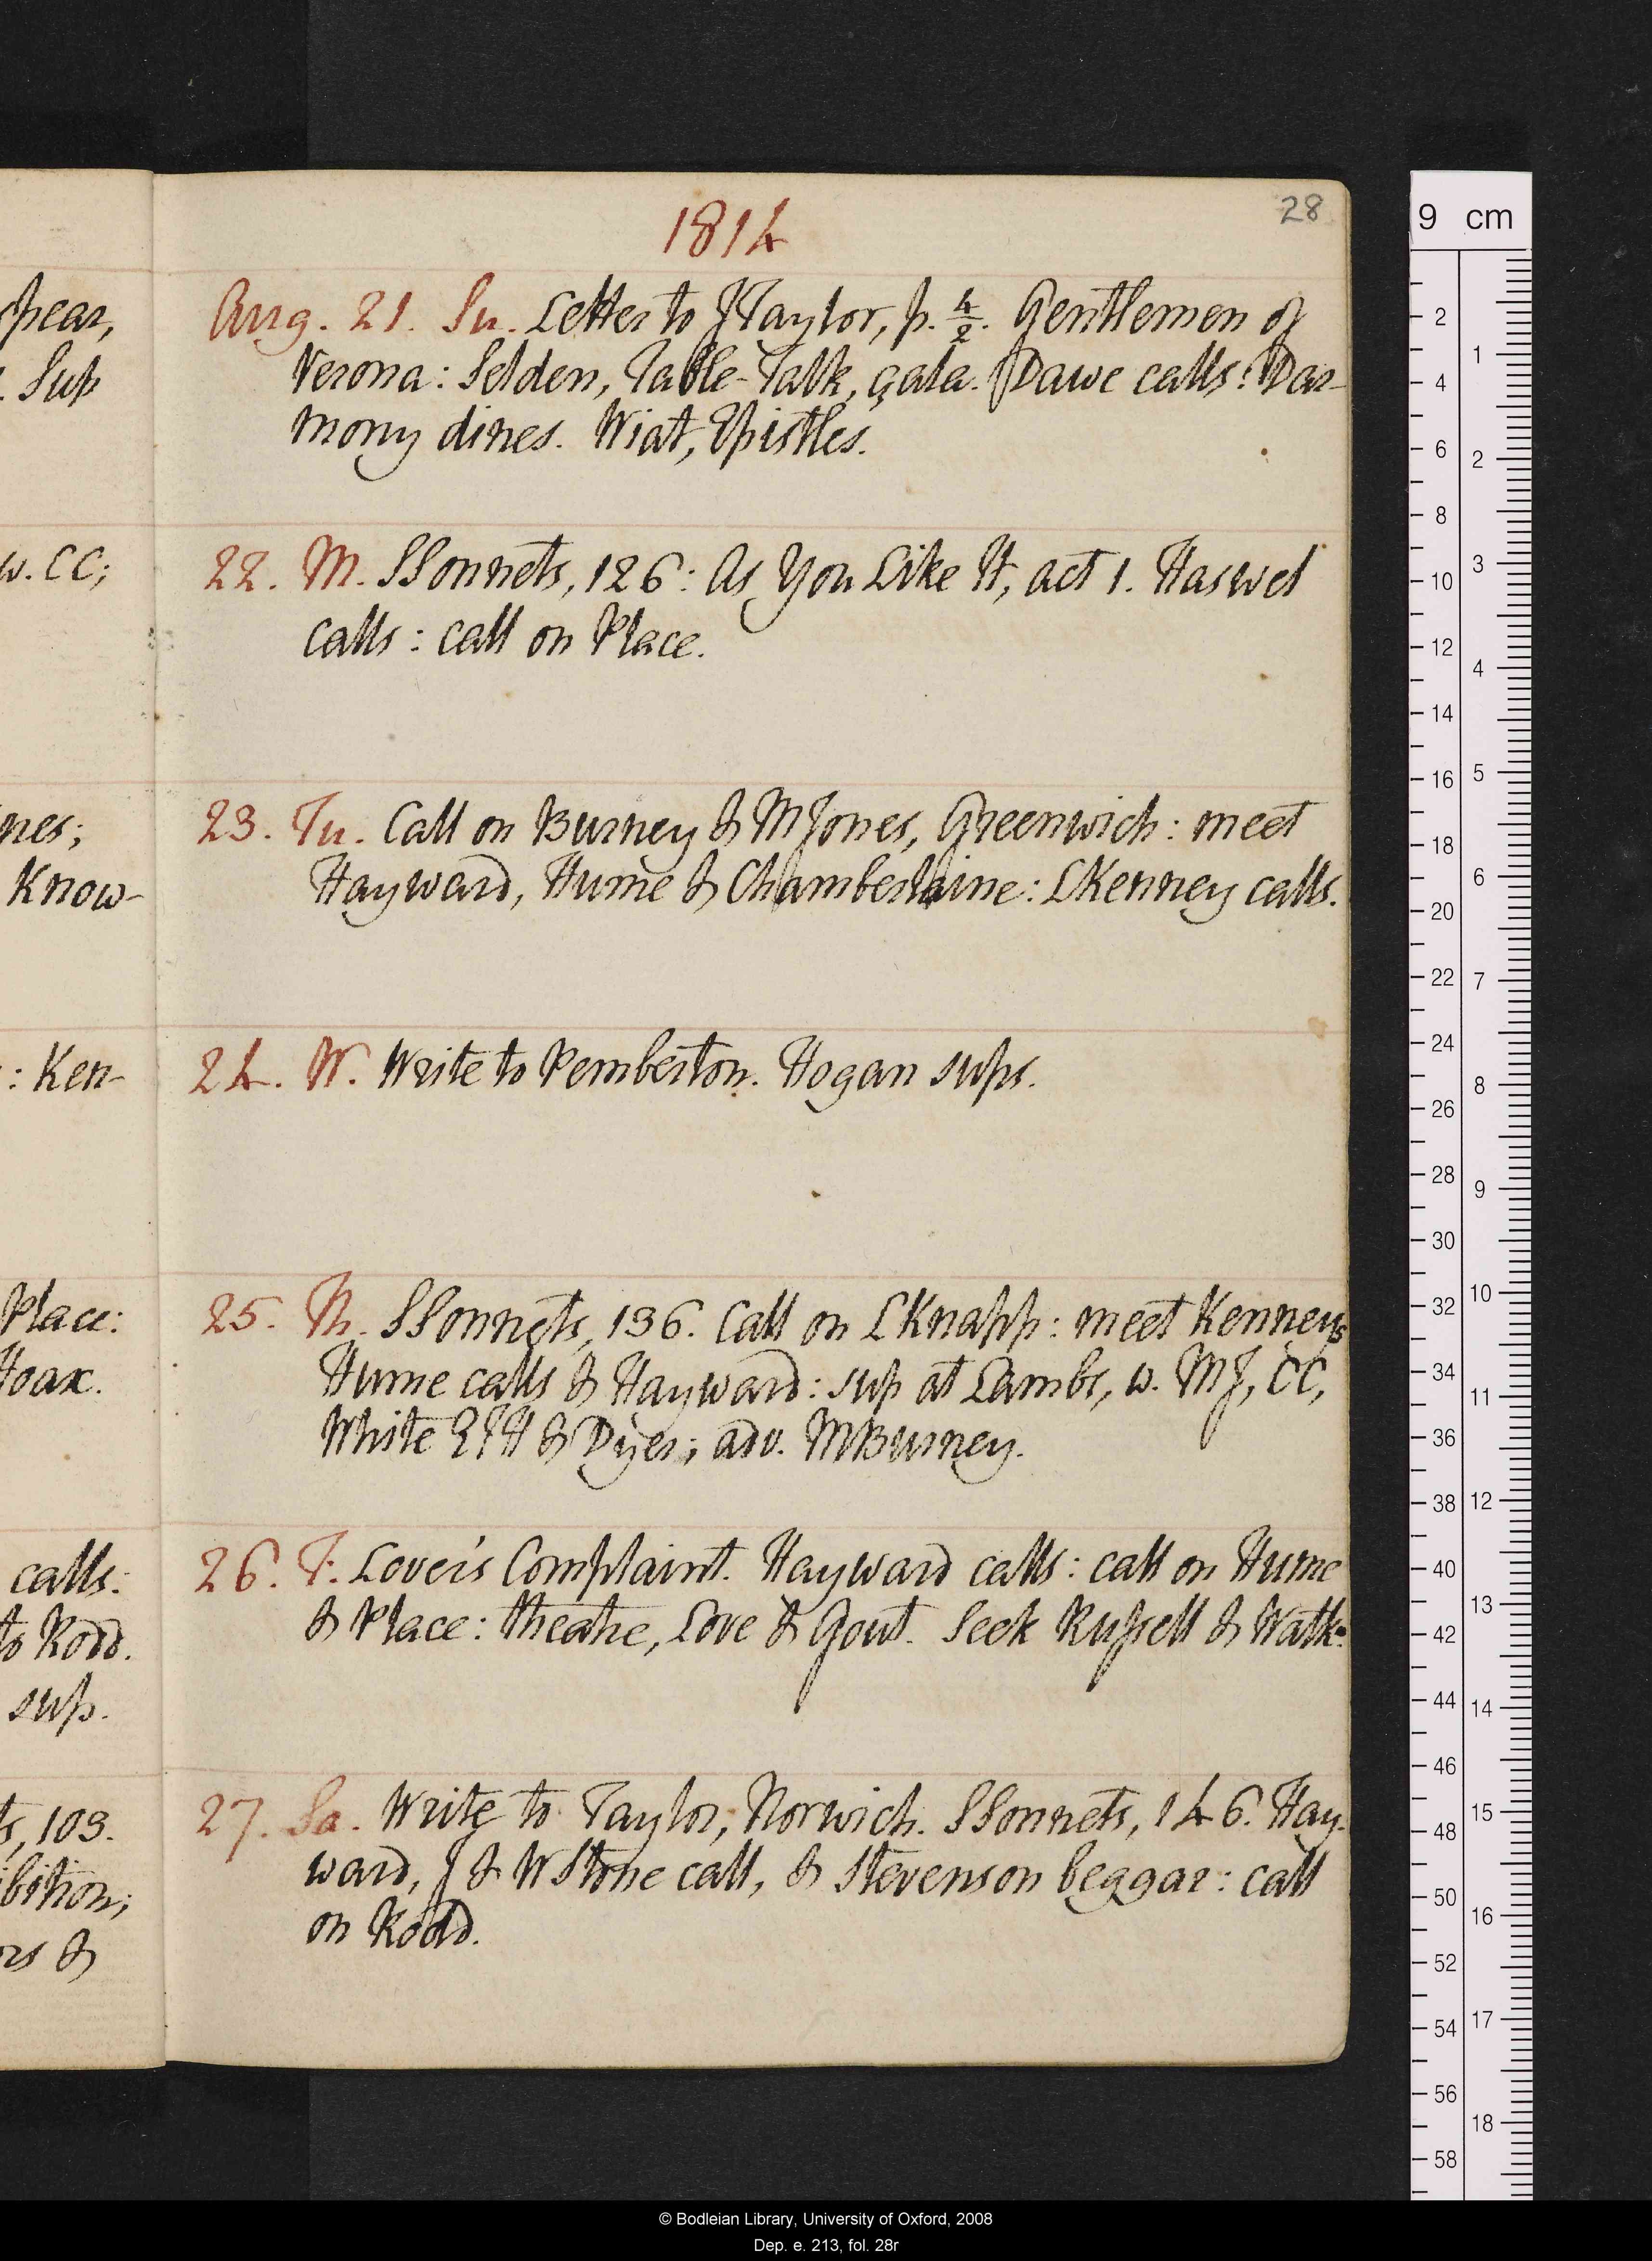 1814
28
Aug. 21. Su. Letter to JTaylor, p. 4/2. Gentlemen of
Verona: Selden, Table-Talk, çala. Dawe calls: Dar-
mony dines. Wiat, Epistles.
22. M. SSonnets, 126: As You Like It, act 1. Haswel
calls: call on Place.
23. Tu. Call on Burney & MJones, Greenwich: meet
Hayward, Hume & Chamberlaine: LKenney calls.
24. W. Write to Pemberton. Hogan sups.
25. Th. SSonnets, 136. Call on LKnapp: meet Kenneys
Hume calls & Hayward: sup at Lambs, w. MJ, CC,
White & Dyer; adv. MBurney.
26. F. Lover's Complaint. Hayward calls: call on Hume
& Place: theatre, Love & Gout. Seek Russell & Watk:
27. Sa. Write to Taylor, Norwich. SSonnets, 146. Hay-
ward, J & WStone call, & Stevenson beggar: call
on Rodd.
spear,
. Sup
w. CC;
nes;
Know-
: Ken-
Place:
Hoax.
calls:
to Rodd.
sup.
ts, 103.
ibition;
ors &
9 cm
2
4
6
8
10
12
14
16
18
20
22
24
26
28
30
32
34
36
38
40
42
44
46
48
50
52
54
56
58
1
2
3
4
5
6
7
8
9
10
11
12
13
14
15
16
17
18
© Bodleian Library, University of Oxford, 2008
Dep. e. 213, fol. 28r